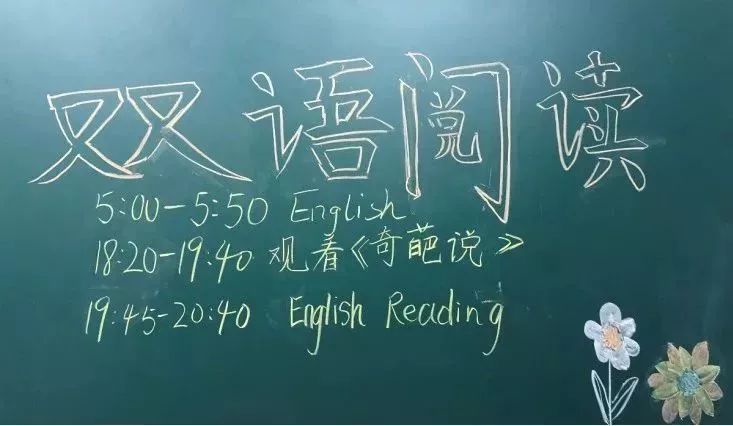 双语阅读
5:00-5:50 English
18:20-19:40 观看《奇葩说》
19:45-20:40 English Reading